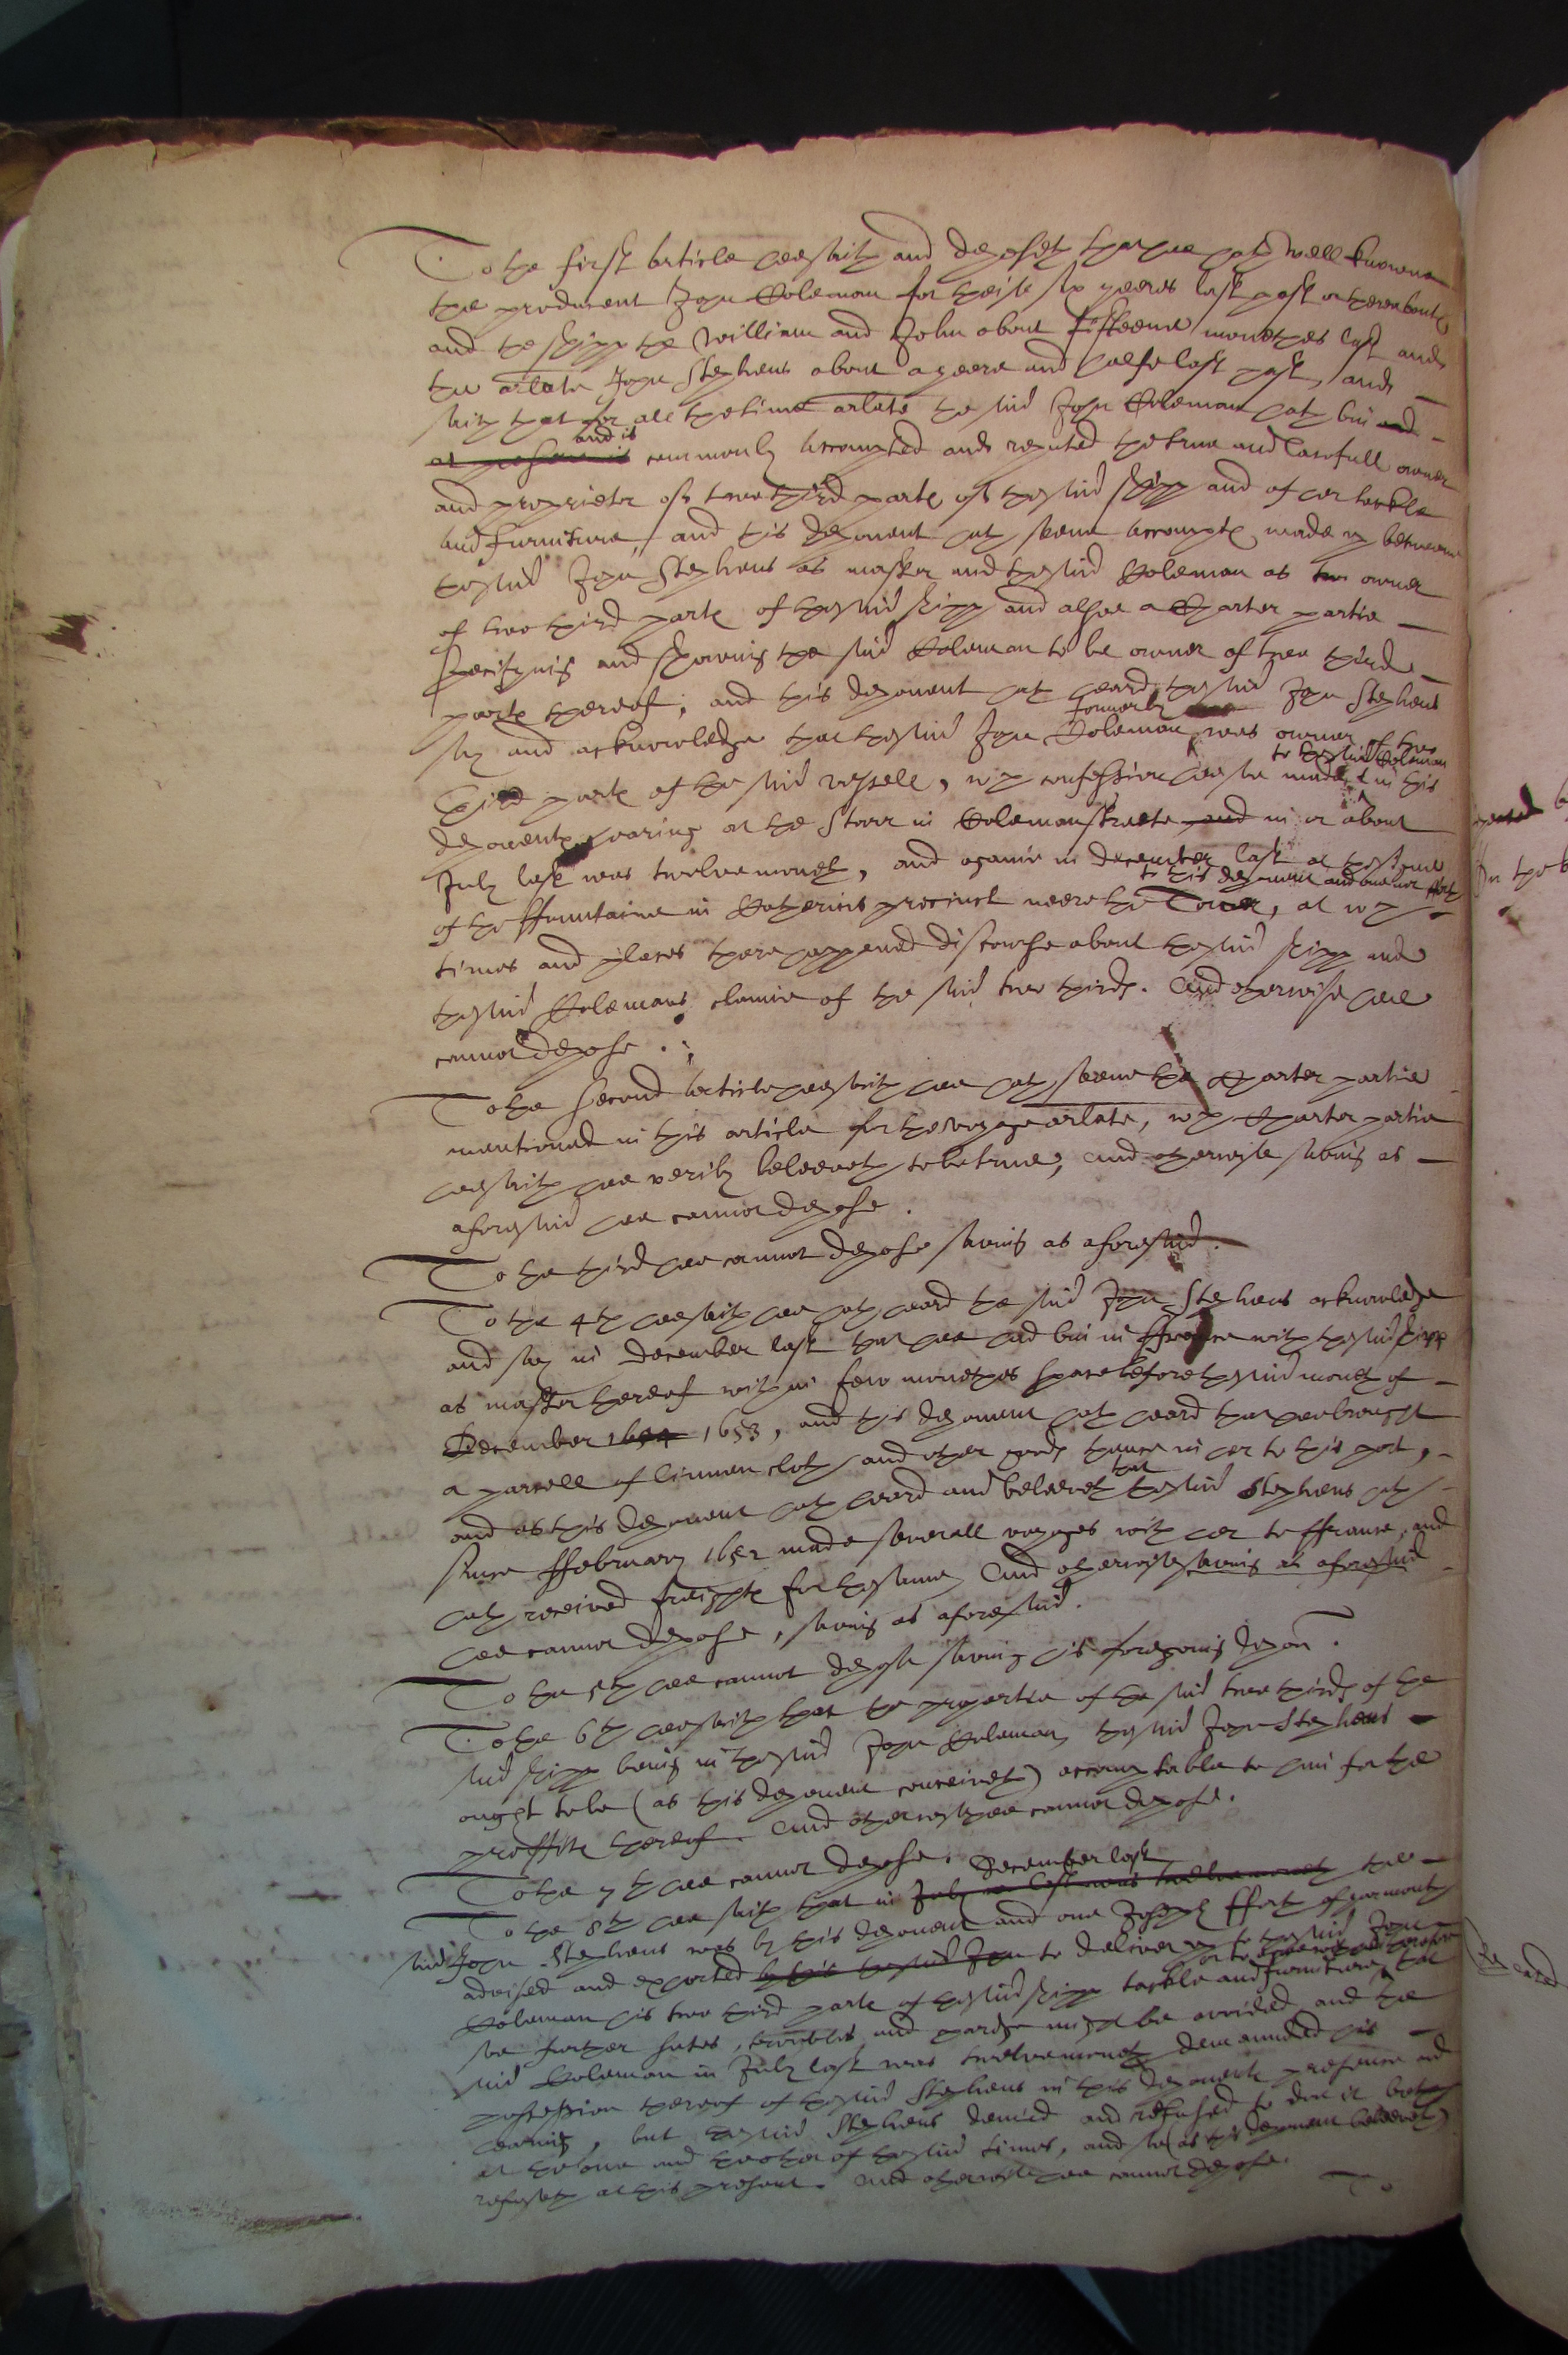 To the first article hee saith and deposeth that hee hath well knowne
the producent John Coleman for theise six yeeres last past or thereabouts
and the shipp the William and John about fifteene monethes last and
the arlate John Stephens about a yeere and halfe last past, and
saith that for all the time arlate the said John Coleman hath bin and
at present is and is commonly accompted and reputed the true and lawfull owner
and proprietor of two third parts of the said shipp and of her tackle
and furniture, and this deponent hath seene accompts made up betweene
the said John Stephens as master and the said Coleman as owner
of two third parts of the said shipp and alsoe a Charter partie
specifying and showing the said Coleman to be owner of two third
parts thereof, and this deponent hath heard the said John Stephens
formerly
say and acknowledge that the said John Coleman was owner of two
to the said Coleman
third parts of the said vessell, wch confession hee soe made in this
deponents hearing at the Starr in Colemanstreete and in or about
July last was twelve moneth, and againe in december last at the signe
to this deponent and one mr ffort
of the ffountaine in Katherins precinct neere the Tower, at wch
times and places there happened discourse about the said shipp and
the said Colemans clamie of the said two thirds. And otherwise hee
cannot depose.
To the second article hee saith hee hath seene the Charter partie
mentioned in this article for the voyage arlate, wch Charter partie
hee saith hee verily beleeveth to be true, and otherwise saving as
aforesaid hee cannot depose.
To the third hee cannot depose saving as aforesaid.
To the 4th hee saith hee hath heard the said John Stephens acknowledge
and say in december last that hee had bin in ffrance with the said shipp
as master thereof within few monethes space before the said moneth of
December 1654 1653, and this deponent hath heard that hee brought
a parcell of linnen cloth and other goods thence in her to this port,
and as this deponent hath heard and beleeveth that the said Stephens hath
since ffebruary 1652 made severall voyages with her to ffrance, and
hath received freight for the same, And otherwise saving as aforesaid
hee cannot depose, saving as aforesaid.
To the 5th hee cannot depose saving his foregoing depon.
To the 6th hee saith that the propertie of the said two thirds of the
said shipp being in the said John Coleman, the said John Stephens
ought to be (as this deponent conceiveth) accomptable to him for the
proffits thereof. And otherwise hee cannot depose.
To the 7th hee cannot depose.
december last
To the 8th hee saith that in July last was twelve moneth the
said John Stephens was by this deponent and one Joseph ffort of yarmouth
advised and exhorted by this the said John to deliver up to the said John
Coleman his two third parts of the said shipp tackle and furniture, that
soe further suites, troubles and charge might be avoided, and the
said Coleman in July last was twelvemoneth demaunded his
possession thereof of the said Stephens in this deponents presence and
hearing, but the said Stephens denied and refused to doe it both
at the one and the other of the said times, and soe (as this deponent beleeveth)
refuseth at this present. And otherwise hee cannot depose.
To